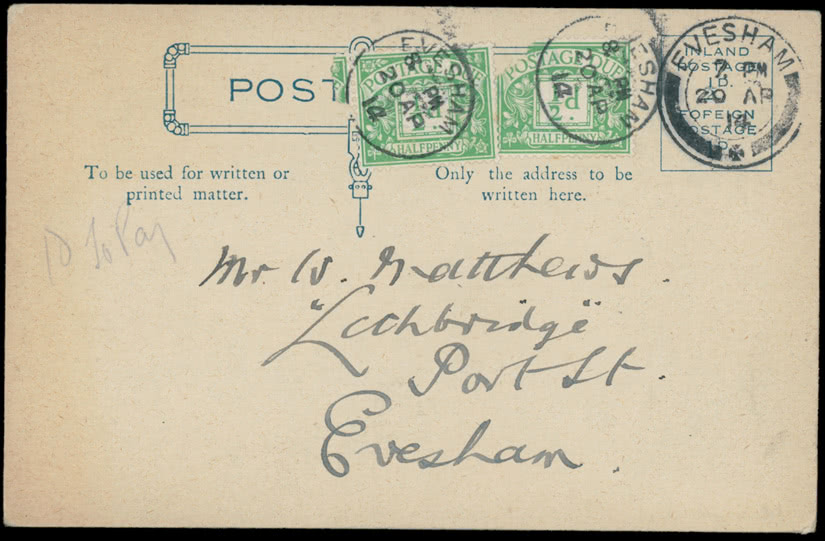 POST
POSTAGE DUE
HALFPENNY
EVESHAM
8 PM
20 AP
14
POSTAGE DUE
D.
HALFPENNY
EVESHAM
8 PM
20 AP
14
EVESHAM
7 PM
20 AP
14
INLAND
POSTAGE
½D.
FOREIGN
POSTAGE
1D.
To be used for written or
printed matter.
Only the address to be
written here.
1D To Pay
Mr. W. Matthews.
"Lethbridge"
Port St.
Evesham.